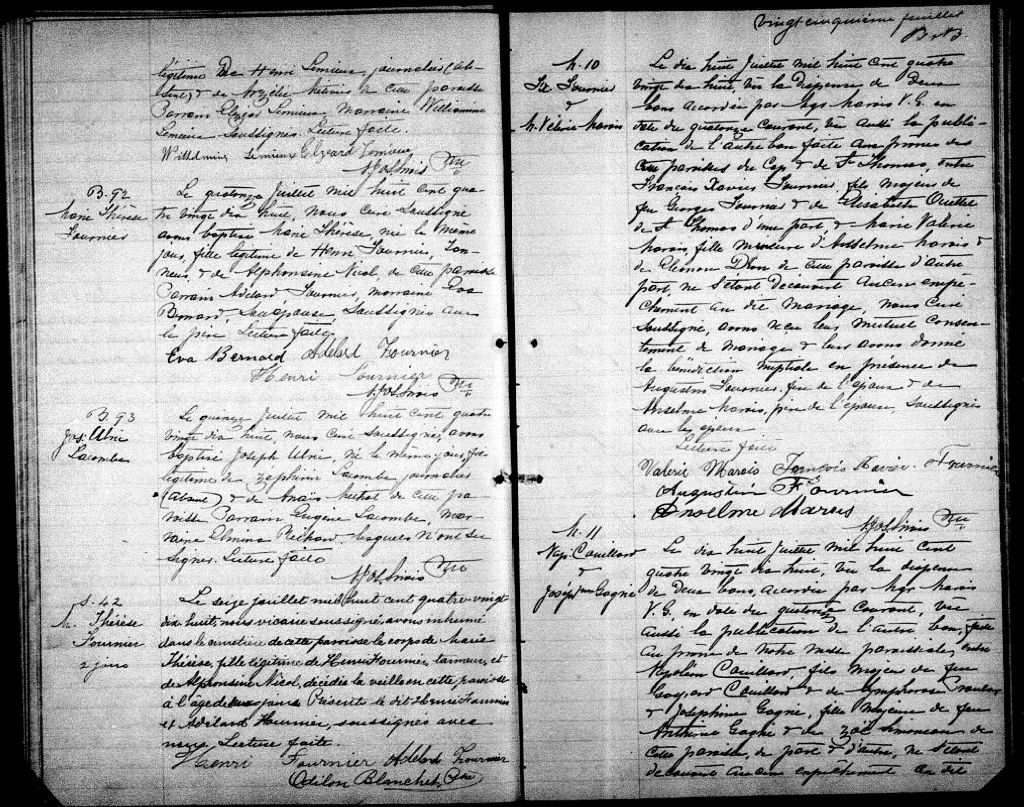 légitime de Henri Lemieux, journalier (ab-
sent) & de cette paroisse
Parrain Elzéar Lemieux Marraine Wilhelmine
Lemieux soussignés. Lecture faite.
Wilhelmine Lemieux Elzéard Lemieux
Ptre
B. 92
Marie Thérèse
Fournier
Le quatorze Juillet mil huit cent qua-
tre vingt dix huit, nous curé soussigné
avons baptisé Marie Thérèse, née le même
jour, fille légitime de Henri Fournier, tan-
neur, & de Alphonsine Nicol, de cette paroisse
Parrain Adélard Fournier, marraine Eva
Bernard, son épouse, soussignés avec
le père Lecture faite
Eva Bernard Adelard Fournier
Henri Fournier
Ptre
B. 93
Jos. Ulric
Lacombe
Le quinze Juillet mil huit cent quatre
vingt dix huit, nous curé soussigné, avons
baptisé Joseph Ulric, né le même jour, fils
légitime de Zéphirin Lacombe journalier
(absent) & de Anaïs de cette pa-
roisse Parrain Eugène Lacombe, Mar-
raine Elmina lesquels n'ont su
signer. Lecture faite
Ptre
S. 42
M. Thérèse
Fournier
2 jours
Le seize juillet mil huit cent quatre-vingt
dix huit, nous vicaire soussigné, avons inhumé
dans le cimetière de cette paroisse le corps de Marie
Thérèse, fille légitime de Henri Fournier, tanneur, et
de Alphonsine Nicol, décédée la veille en cette paroisse
à l'âge de deux jours Présents le dit Henri Fournier
et Adélard Fournier, soussignés avec
nous Lecture faite.
Henri Fournier Adelard Fournier
Odilon Blanchet, Ptre
Vingt-cinquième feuillet
M. 10
Frs Fournier
&
M. Valérie Marois
Le dix huit Juillet mil huit cent quatre
vingt dix huit, vu la dispense de deux
bans accordée par Mgr Marois V.G. en
date du quatorze courant, vu aussi la publi-
cation de l'autre ban faite aux prônes des
paroisses du Cap & de St Thomas, entre
François Xavier Fournier, fils majeur de
feu Georges Fournier & de Elisabeth Ouellet
de St Thomas d'une part, & Marie Valérie
Marois fille mineure d'Anselme Marois &
de Eléonore Dion de cette paroisse d'autre
part, ne s'étant découvert aucun empê-
chement au dit mariage, nous curé
soussigné, avons reçu leur mutuel consen-
tement de mariage & leur avons donné
la bénédiction nuptiale en présence de
Augustin Fournier, frère de l'époux & de
Anselme Marois, père de l'épouse, soussignés
avec les époux
Lecture faite
Valerie Marois François Xavier Fournier
Augustin Fournier
Anselme Marois
Ptre
M. 11
Nap. Couillard
&
Joséphine Gagné
Le dix huit Juillet mil huit cent
quatre vingt dix huit, vu la dispense
de deux bans accordée par Mgr Marois
V.G. en date du quatorze courant, vu
aussi la publication de l'autre ban, faite
au prône de notre messe paroissiale, entre
Napoléon Couillard, fils majeur de feu
Gaspard Couillard & de Symphorose
& Joséphine Gagné, fille majeure de feu
Anthime Gagné & de Zoé de
cette paroisse, de part & d'autre, ne s'étant
découvert aucun empêchement au dit